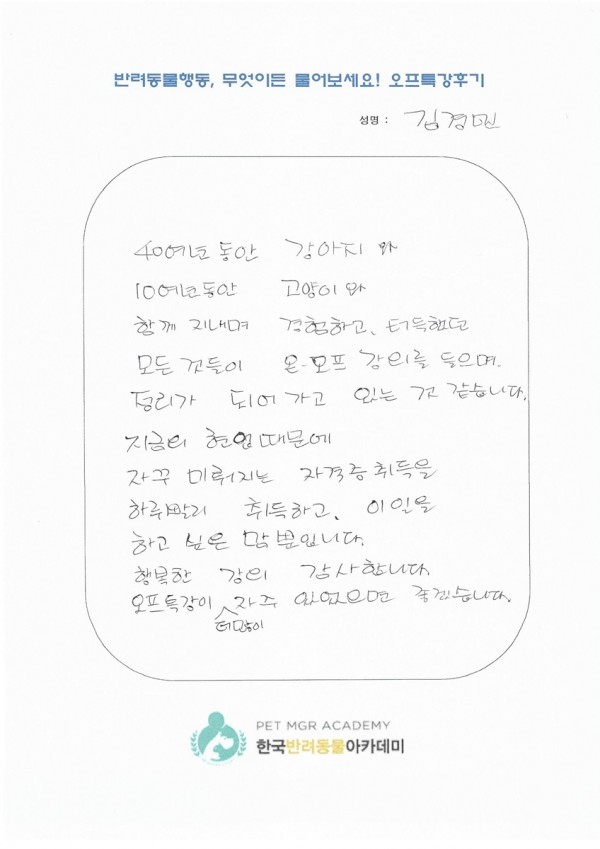 반려동물행동, 무엇이든 물어보세요! 오프특강후기
성명 : 김경민
40여년 동안 강아지 와
10여년동안 고양이 와
함께 지내며 경험하고, 터득했던
모든 것들이 온·오프 강의를 들으며.
정리가 되어 가고 있는 것 같습니다.
지금의 현업때문에
자꾸 미뤄지는 자격증취득을
하루빨리 취득하고, 이일을
하고 싶은 맘 뿐입니다.
행복한 강의 감사합니다.
오프특강이 자주 있었으면 좋겠습니다.
더많이
PET MGR ACADEMY
한국반려동물아카데미